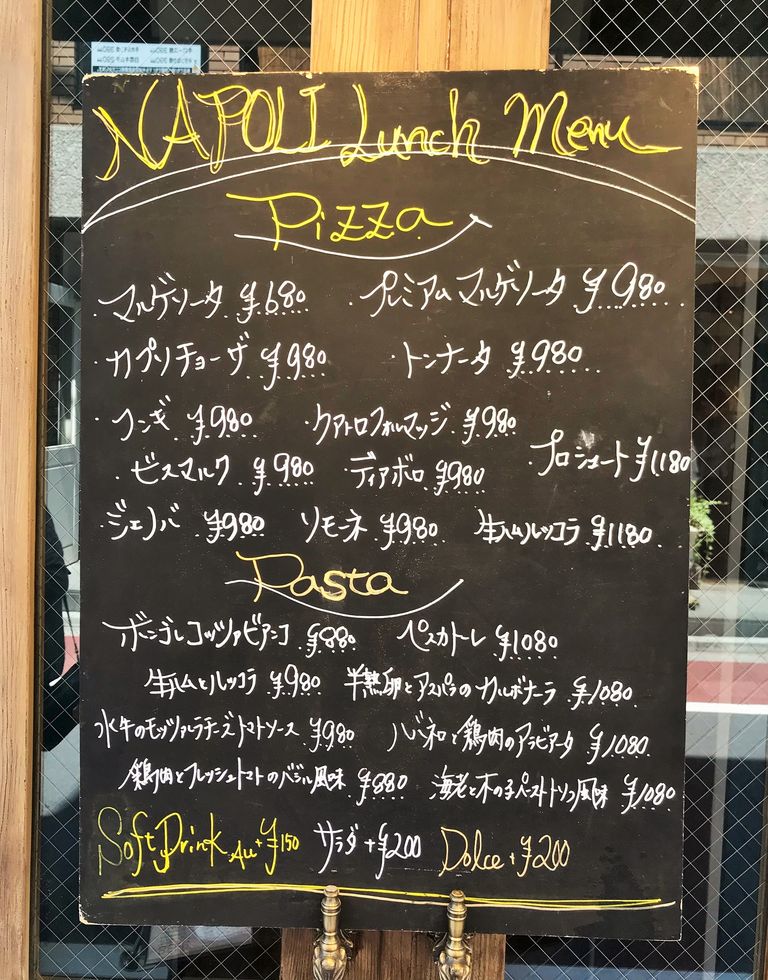 NAPOLI Lunch Menu
Pizza
・マルゲリータ ¥680 ・プレミアムマルゲリータ ¥980
・カプリチョーザ ¥980 ・トンナータ ¥980
・フンギ ¥980 ・クアトロフォルマッジ ¥980
・ビスマルク ¥980 ・ディアボロ ¥980 ・プロシュート ¥1180
・ジェノバ ¥980 リモーネ ¥980 生ハムルッコラ ¥1180
Pasta
ボンゴレコッツァビアンコ ¥880 ペスカトーレ ¥1080
生ハムとルッコラ ¥980 半熟卵とアスパラのカルボナーラ ¥1080
水牛のモッツァレラチーズトマトソース ¥980 ハバネロと鶏肉のアラビアータ ¥1080
鶏肉とフレッシュトマトのバジル風味 ¥880 海老と木の子ペーストトリュフ風味 ¥1080
Soft Drink ALL+¥150 サラダ+¥200 Dolce+¥200